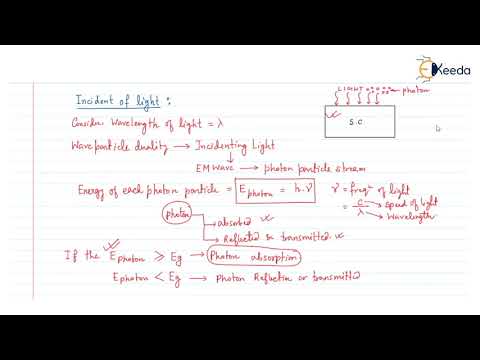 EKeeda
Incident of light :
LIGHT
photon
S.C
Consider Wavelength of light = λ
Wave particle duality → Incidenting Light
EM Wave → photon particle stream
Energy of each photon particle = Ephoton = h.ν
ν = freqⁿ of light
= c/λ → speed of light
→ Wavelength
photon
→ absorbed ✓
→ Reflected or transmitted ✓
If the Ephoton ⩾ Eg → Photon absorption
Ephoton < Eg → Photon Reflection or transmitted